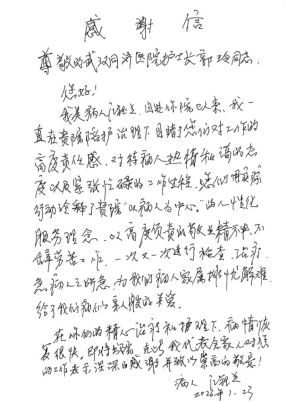 感谢信
尊敬的武汉同济医院护士长郭玲同志:
您好!
我是病人江, 自进你院以来, 我一
直在贵院陪护治疗下, 目睹了您们对工作的
高度责任感, 对待病人热情和蔼的态
度以及紧张忙碌的工作, 您们用实际
行动诠释了贵院“以病人为中心”的人性化
服务理念, 以高度负责的敬业精神, 不
辞劳苦工作, 一次又一次进行检查、治疗,
急病人之所急, 为我们病人家属排忧解难,
给了我们病人亲人般的关爱。
在你们的精心治疗和护理下, 病情恢
复很快, 即将, 我代表全家人对您
们工作表示深深的感谢并致以崇高的敬意!
病人 江
.1.23